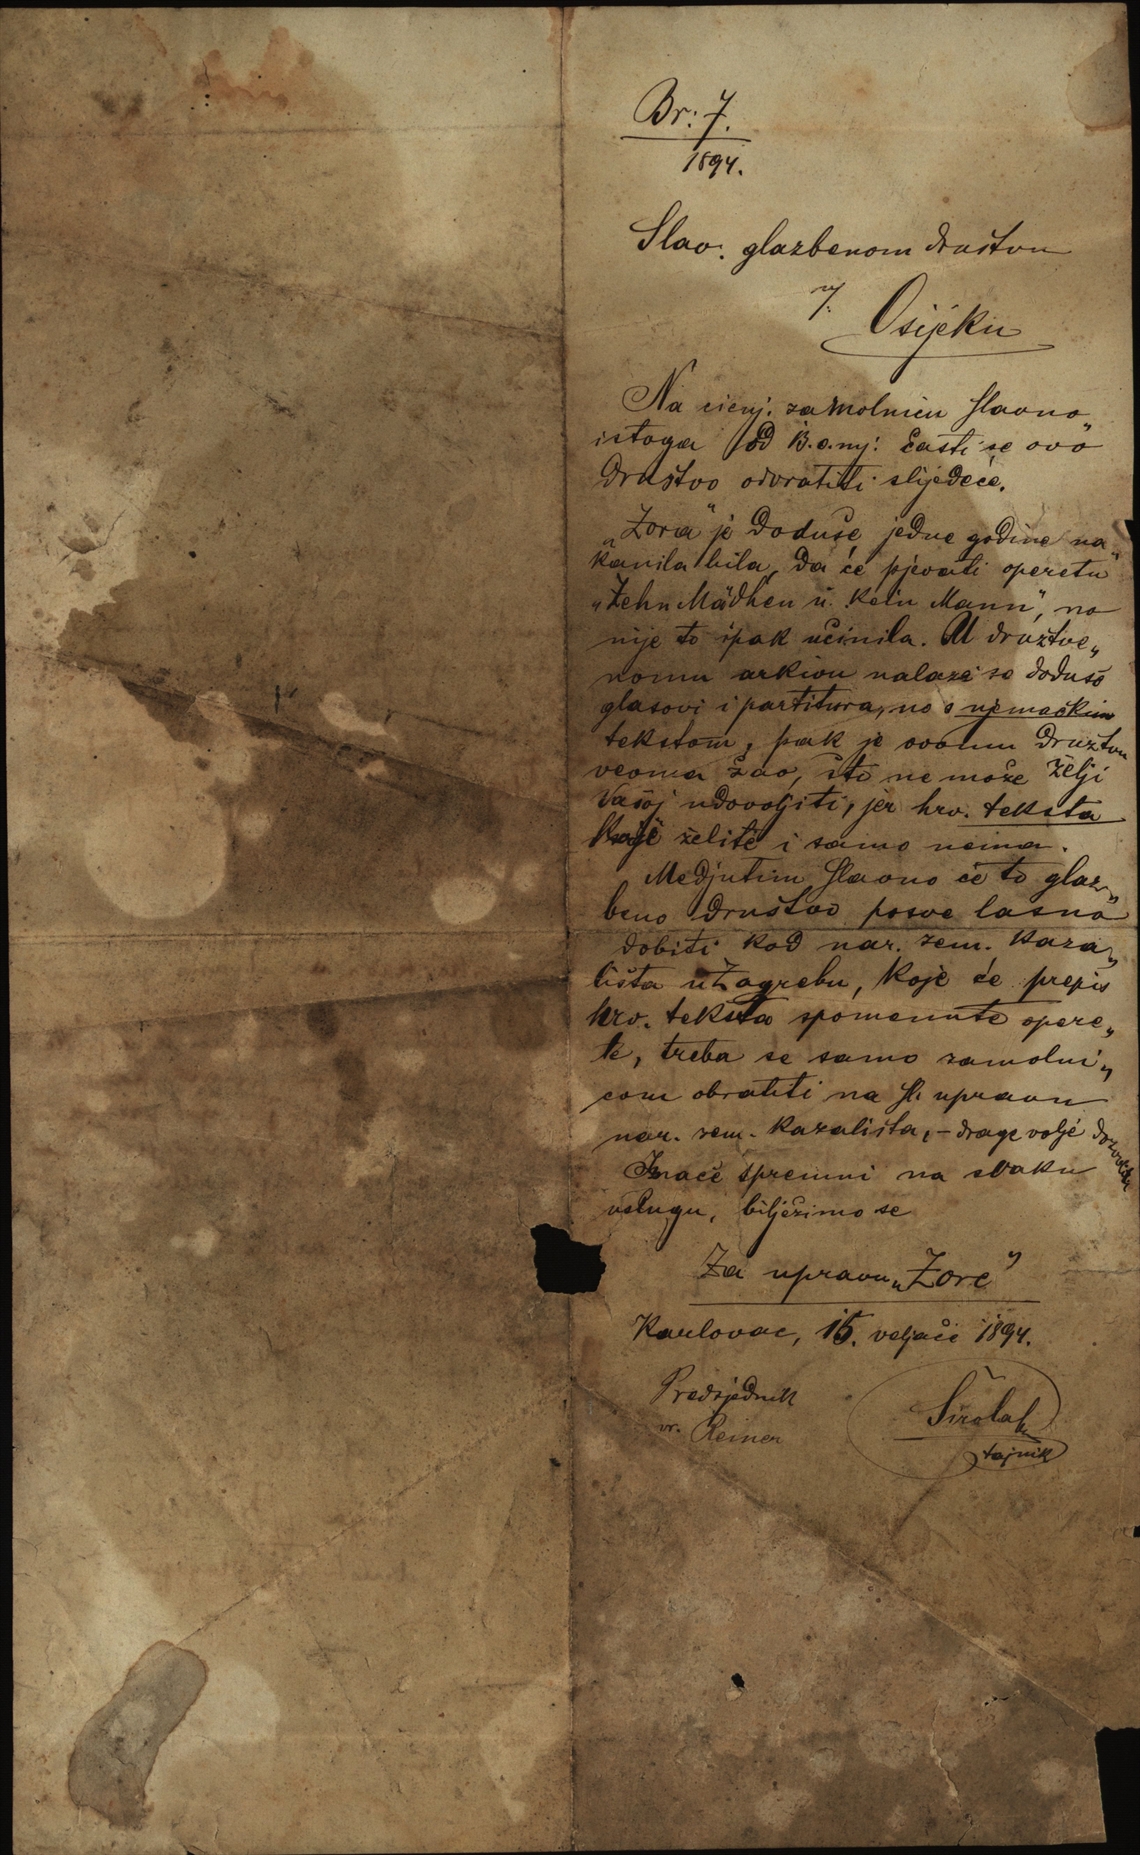 Br: 7.
1894.
Slav. glazbenom društvu
u
Osijeku
Na cienj. zamolnicu slavno
istoga od 13. o. mj. časti se ovo
društvo odvratiti slijedeće.
„Zora" je doduše jedne godine na„
kanila bila, da će pjevati operetu
„Zehn Mädhen u. kein Mann", no
nije to ipak učinila. U družtve„
nomu arkivu nalaze se doduše
glasovi i partitura, no s njemačkim
tekstom, pak je ovomu družtvu
veoma žao, što ne može želji
Vašoj udovoljiti, jer hrv. teksta
koje želite i samo neima.
Medjutim slavno će to glaz„
beno društvo posve lasno
dobiti kod nar. zem. kaza„
lišta u Zagrebu, koje će prepis
hrv. teksta spomenute opere„
te, treba se samo zamolni„
com obratiti na sl. upravu
nar. zem. kazališta, – drage volje dozvoliti
Inače spremni na svaku
uslugu, bilježimo se
Za upravu „Zore"
Karlovac, 15. veljače 1894.
Predsjednik
Reiner
Širolah
tajnik